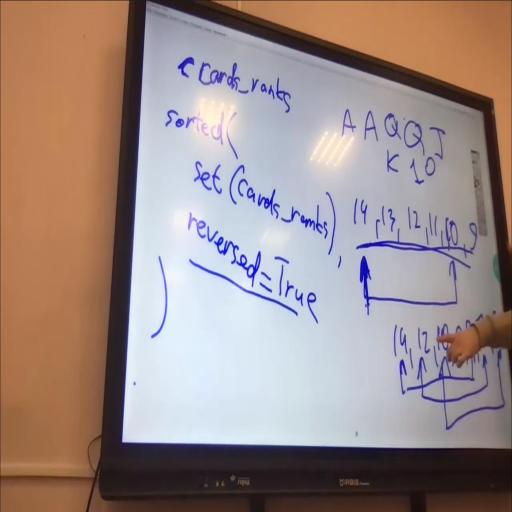 cards_ranks
sorted(
set(cards_ranks),
reversed=True
)
A A Q Q J
K 10
14, 13, 12, 11, 10, 9
14, 12, 10